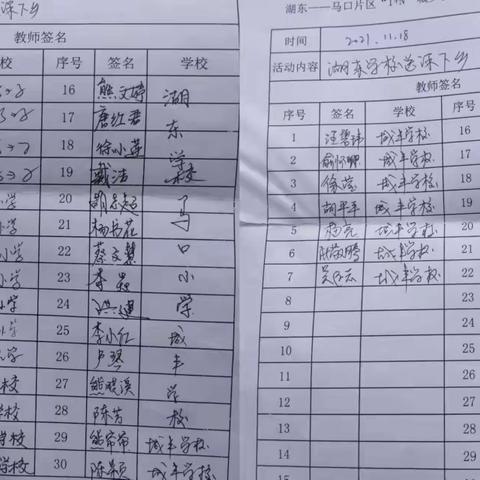 深下乡
教师签名
校 序号 签名 学校
16 熊文婷 湖
17 唐红君 东
18 徐小莲 学
19 戴洁 校
小学 20 马
小学 21 杨书花
小学 22 蔡文慧 口
小学 23 李 小
小学 24 洪 学
小学 25 李小红 城
26 卢琴 丰
学校 27 熊 学
学校 28 陈芳 校
学校 29 熊 城丰学校
学校 30 陈 城丰学校
湖东——马口片区
时间 2021.11.18
活动内容 湖东学校送深下乡
教师签名
序号 签名 学校 序号
1 汪 城丰学校 16
2 城丰学校 17
3 徐莹 城丰学校 18
4 胡平平 城丰学校 19
5 杨亮 城丰学校 20
6 城丰学校 21
7 吴 城丰学校 22
8 23
9 24
10 25
11 26
12 27
13 28
14 29